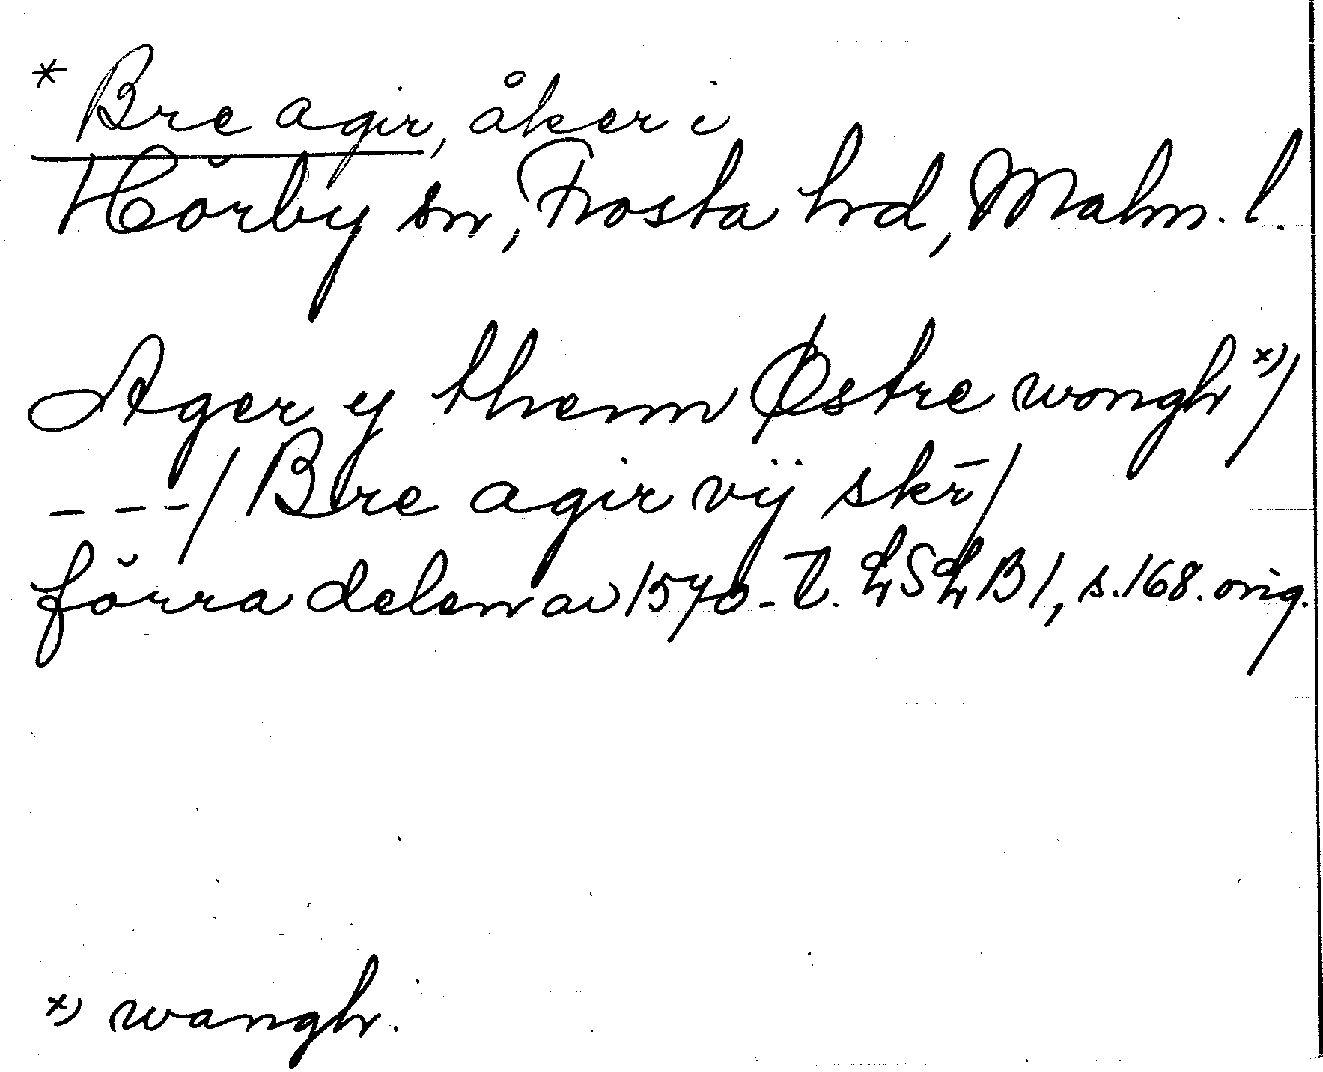 * Bre agir, åker i
Hörby sn, Frosta hrd, Malm. l.
Ager y thenn Østre wongh x)/
---/ Bre agir vij skr̄/
förra delen av 1570-t. LSLB1, s. 168. orig.
x) wangh.